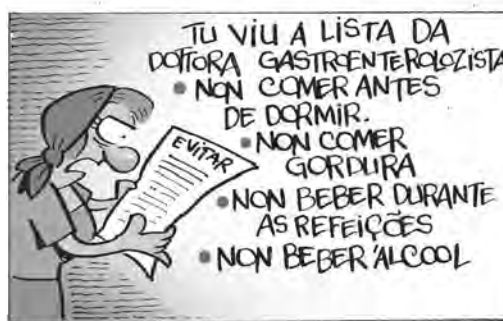 TU VIU A LISTA DA
DOTTORA GASTROENTEROLOZISTA
• NON COMER ANTES
DE DORMIR.
• NON COMER
GORDURA
• NON BEBER DURANTE
AS REFEIÇÕES
• NON BEBER ÁLCOOL
EVITAR